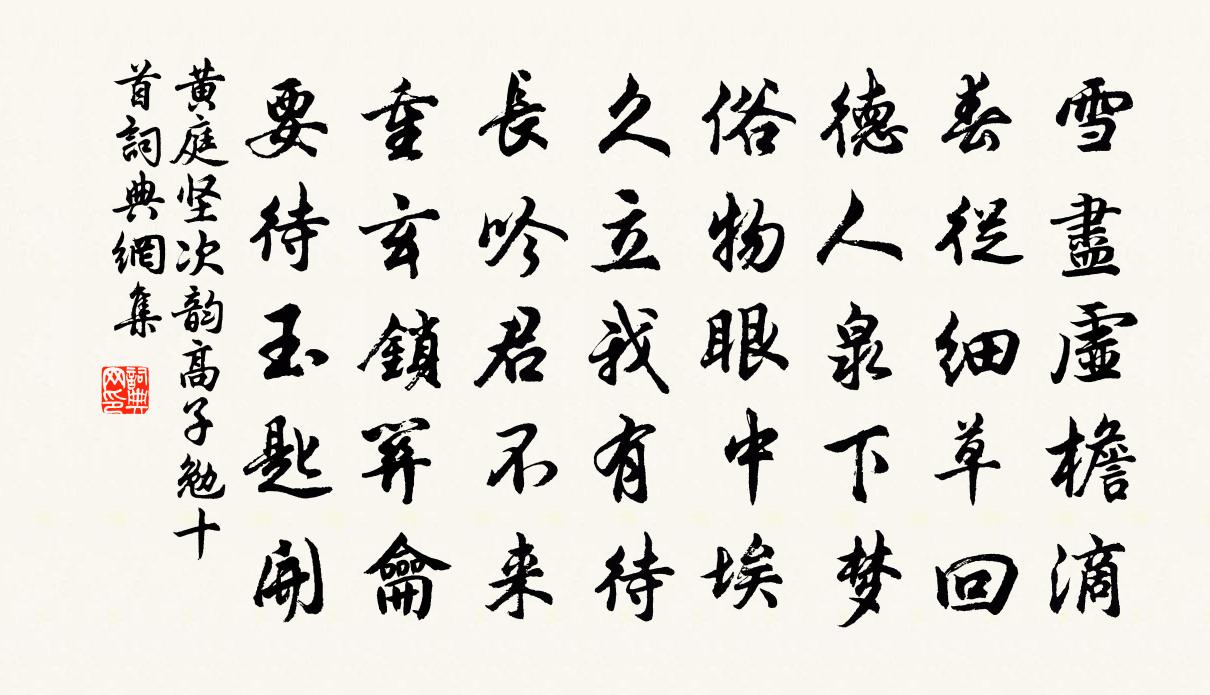 雪盡虛檐滴
春從細草回
德人泉下梦
俗物眼中埃
久立我有待
長吟君不来
重玄鎖関龠
要待玉匙開
黄庭坚次韵高子勉十
首詞典網集
詞典
网印